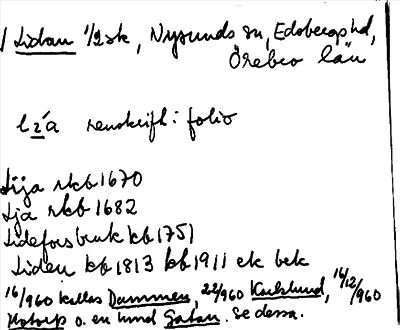 / Lidan 1/2 sk, Nysunds sn, Edsbergs hd,
Örebro län
renskrift: folio
Lija skb 1670
Lja skb 1682
Lideforsbruk kb 1751
Liden kb 1813 kb 1911 ek bek
16/960 kallas Dammen, 22/960 Karlslund, 16/12/960
o. en hmd Gatan. Se dessa.